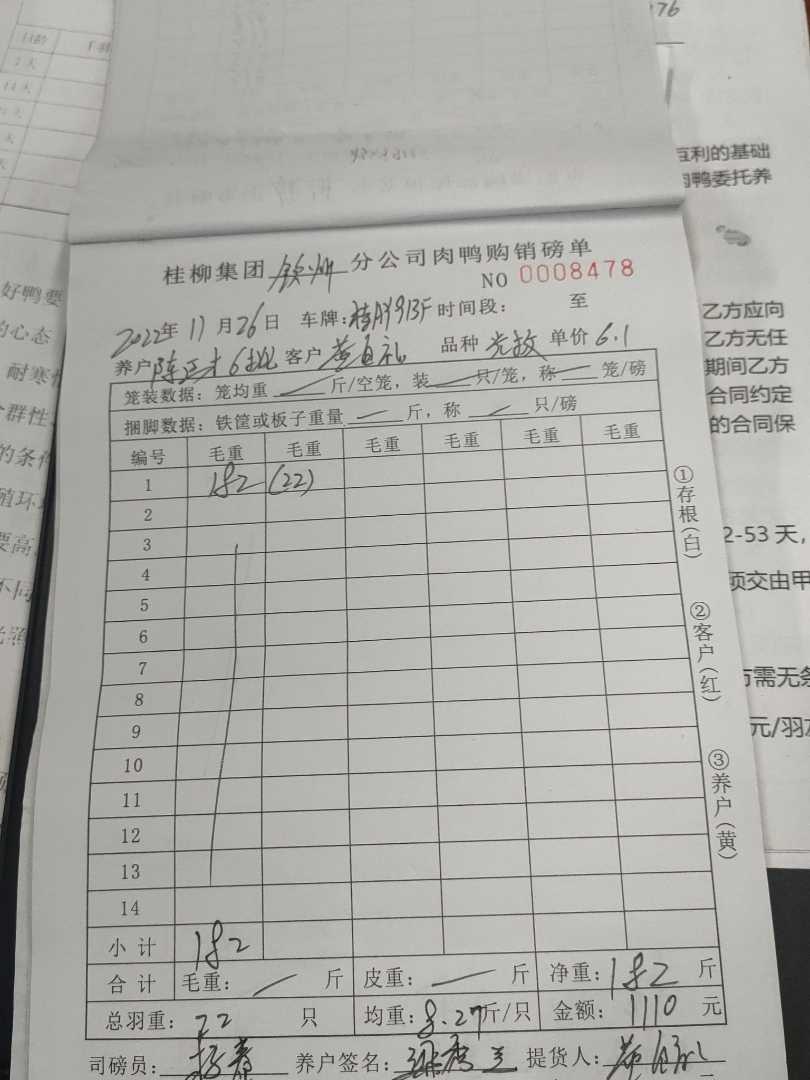 桂柳集团 钦州 分公司肉鸭购销磅单
NO 0008478
2022年 11月26日 车牌: 时间段: 至
养户 6批 客户 品种 单价 6.1
笼装数据: 笼均重 斤/空笼, 装 只/笼, 称 笼/磅
捆脚数据: 铁筐或板子重量 斤, 称 只/磅
编号 毛重 毛重 毛重 毛重 毛重 毛重
1 182 (22)
2
3
4
5
6
7
8
9
10
11
12
13
14
小计 182
合计 毛重: 斤 皮重: 斤 净重: 182 斤
总羽重: 22 只 均重: 8.27 斤/只 金额: 1110 元
司磅员: 养户签名: 提货人:
①存根(白)
②客户(红)
③养户(黄)
日龄
7天
14天
好鸭要
的心态
耐寒性
群性
的条件
殖环
要高
不同
76
互利的基础
肉鸭委托养
乙方应向
乙方无任
期间乙方
合同约定
的合同保
2-53 天,
项交由甲
方需无条
元/羽